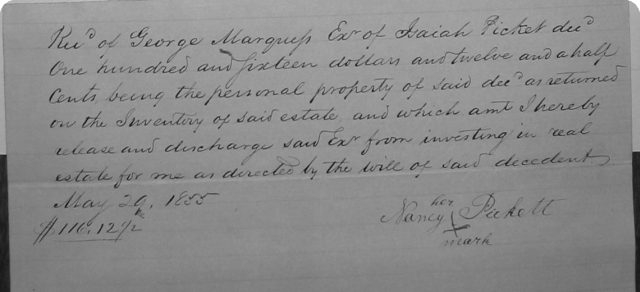 Recd of George Marquess Exr of Isaiah Picket decd
One hundred and sixteen dollars and twelve and a half
Cents being the personal property of said decd as returned
on the Inventory of said estate and which amt I hereby
release and discharge said Exr from investing in real
estate for me as directed by the will of said decedent
May 29, 1855
$116.12 1/2
her
Nancy X Pickett
mark